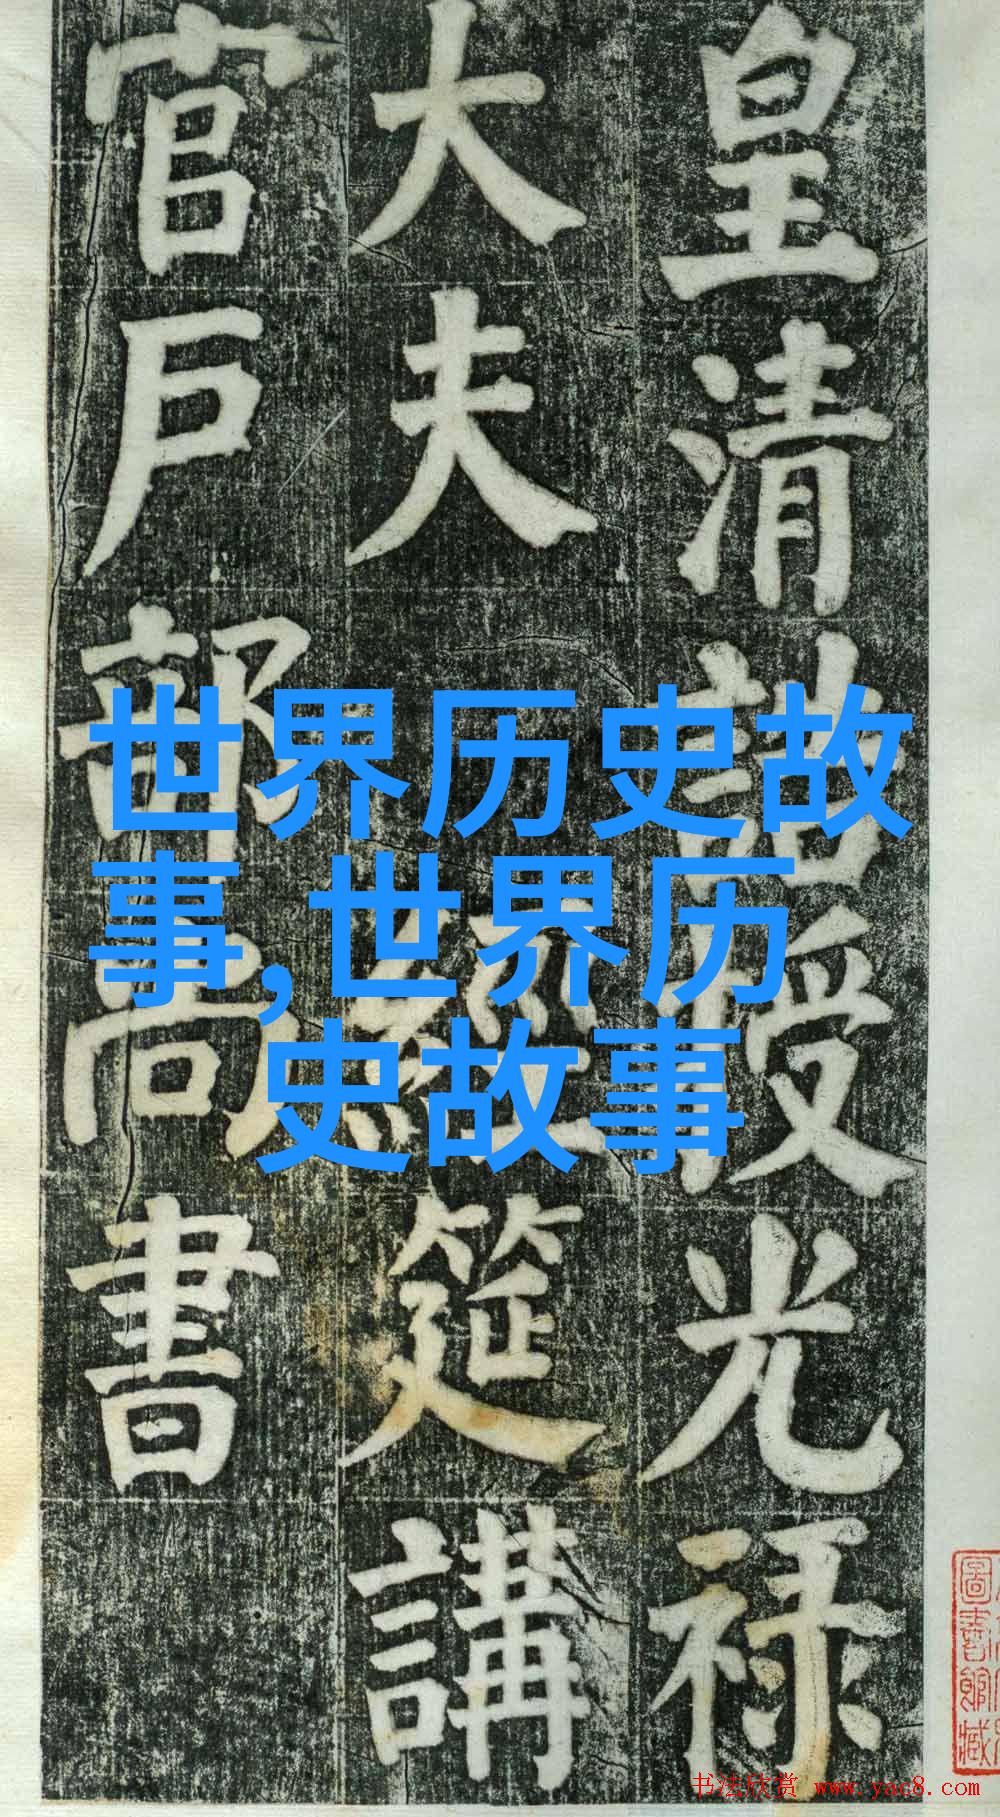 皇清誥授光禄
大夫經筵講
官戶部尚書
世界历史故
事,世界历
史故事
圖書館藏
书法欣赏 www.yac8.com